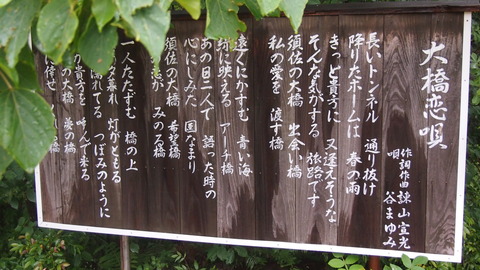 大橋恋唄
作詞作曲 諌山宣光
唄 谷まゆみ
長いトンネル 通り抜け
降りたホームは 春の雨
きっと貴方に 又逢えそうな
そんな気がする 旅路です
須佐の大橋 出会い橋
私の愛を 渡す橋
遠くにかすむ 青い海
に映える アーチ橋
あの日二人で 語った時の
心にしみた 国なまり
須佐の大橋 希望橋
みのる橋
一人たたずむ 橋の上
夕暮れ 灯がともる
濡れてる つぼみのように
貴方を 呼んで来る
の大橋 夢の橋